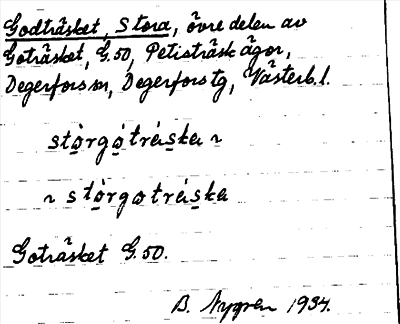 Godträsket, Stora, övre delen av
Goträsket, G.50, Petisträsk ägor,
Degerfors sn, Degerfors tg, Västerb. l.
stòrgó tráska ~
~ stòrgo tráska
Goträsket G.50.
B. Nygren 1934.